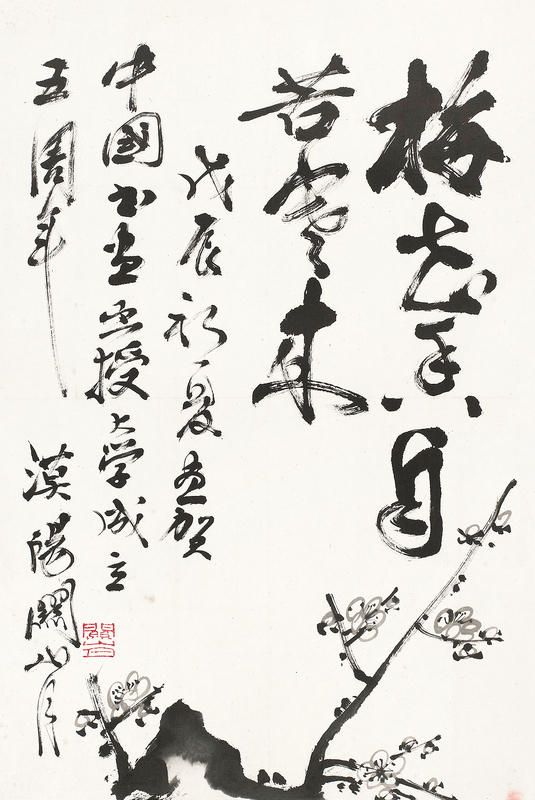 梅花香自
苦寒来
戊辰初夏画贺
中國书画函授大学成立
五周年 漠陽關山月